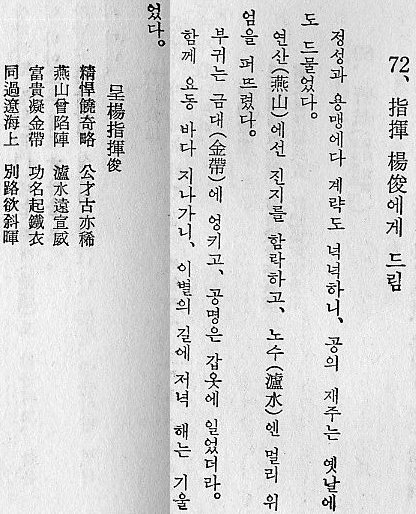 72、指揮 楊俊에게 드림
정성과 용맹에다 계략도 넉넉하니、공의 재주는 옛날에
도 드물었다。
연산(燕山)에선 진지를 함락하고、노수(瀘水)엔 멀리 위
엄을 퍼뜨렸다。
부귀는 금대(金帶)에 엉키고、공명은 갑옷에 일었더라。
함께 요동 바다 지나가니、이별의 길에 저녁 해는 기울
었다。
呈楊指揮俊
精悍饒奇略 公才古亦稀
燕山曾陷陣 瀘水遠宣威
富貴凝金帶 功名起鐵衣
同過遼海上 別路欲斜暉